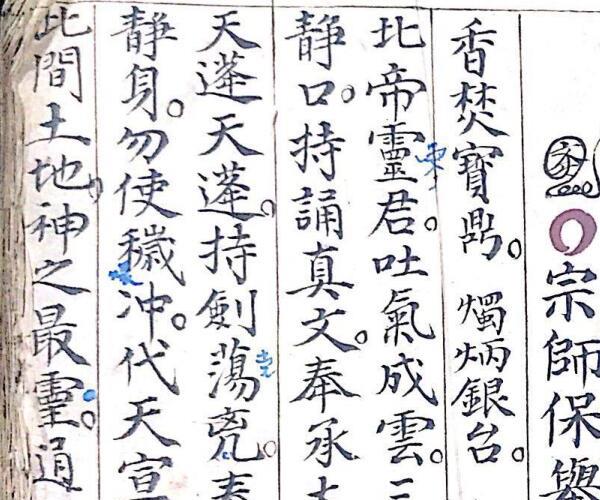 宗師保舉
香焚寶鼎。燭炳銀台。
北帝靈君。吐氣成雲。三
静口。持誦真文。奉承太
天蓬天蓬。持劍蕩兇。奉
静身。勿使穢冲。代天宣
此間土地。神之最靈。通